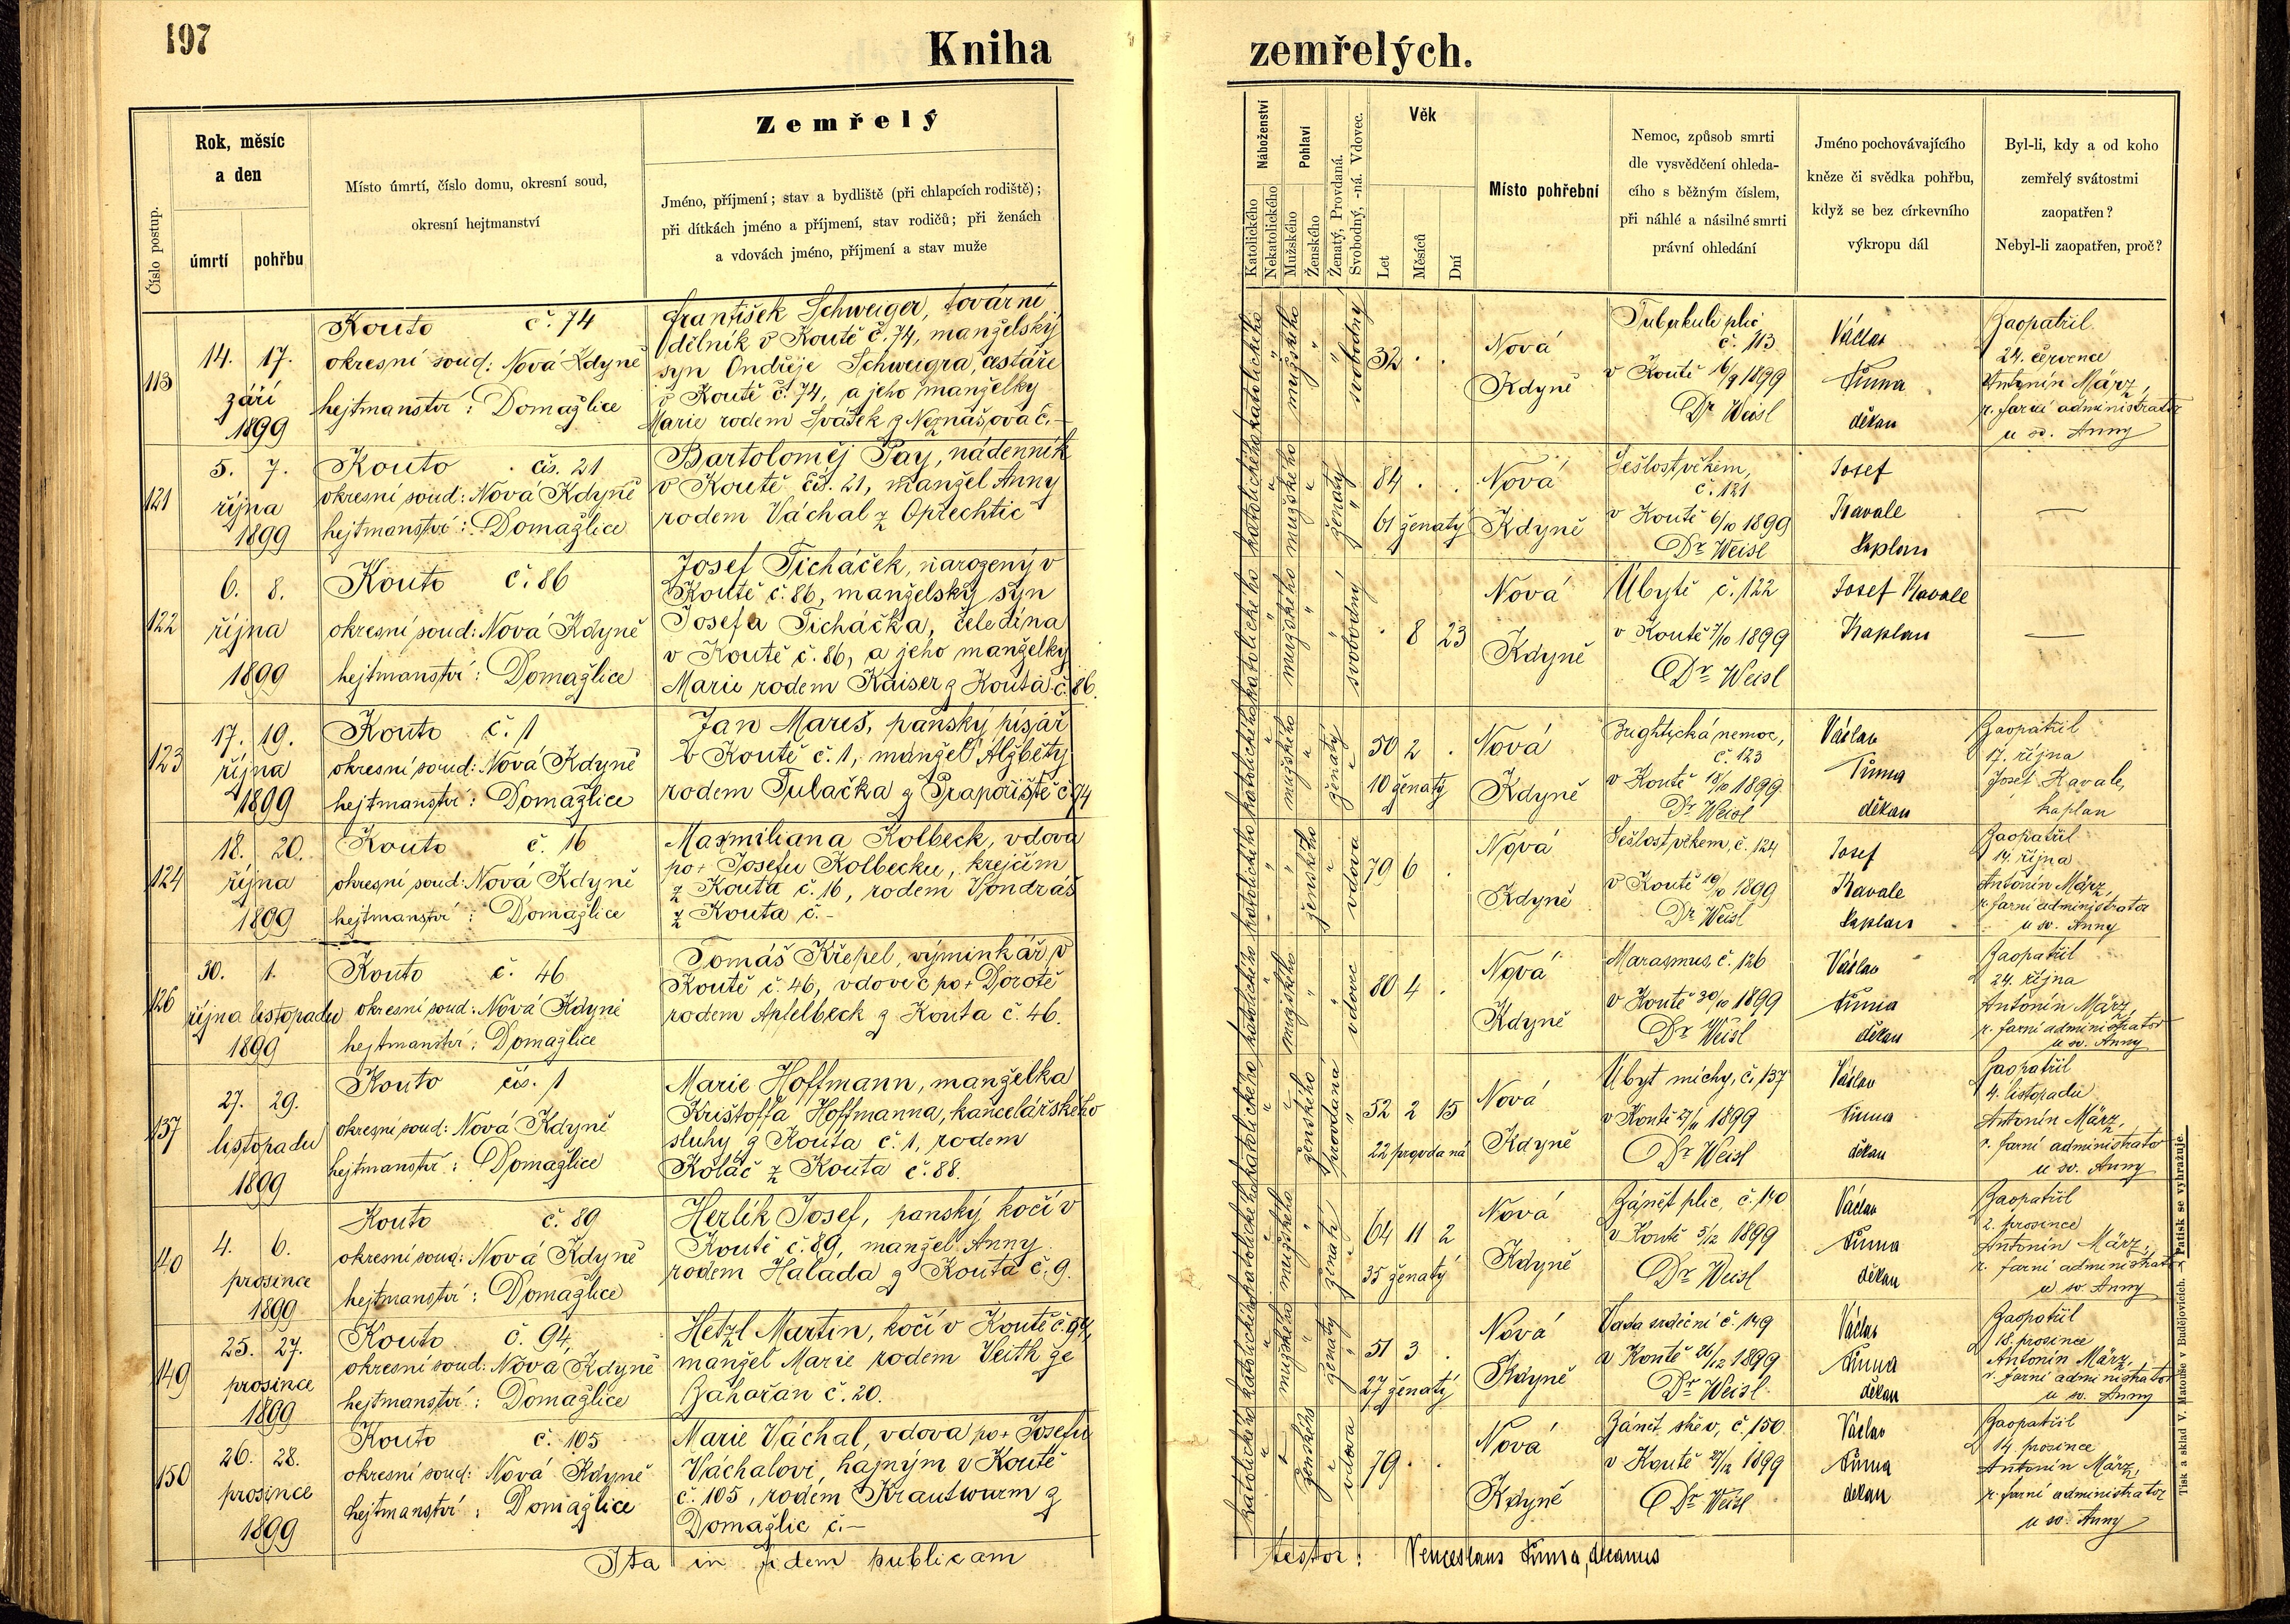 197
Kniha
zemřelých.
Číslo postup.
Rok, měsíc
a den
úmrtí
pohřbu
Místo úmrtí, číslo domu, okresní soud,
okresní hejtmanství
Zemřelý
Jméno, příjmení; stav a bydliště (při chlapcích rodiště);
při dítkách jméno a příjmení, stav rodičů; při ženách
a vdovách jméno, příjmení a stav muže
Náboženství
Katolického
Nekatolického
Pohlaví
Mužského
Ženského
Ženatý, Provdaná.
Svobodný, -ná. Vdovec.
Věk
Let
Měsíců
Dní
Místo pohřební
Nemoc, způsob smrti
dle vysvědčení ohleda-
cího s běžným číslem,
při náhlé a násilné smrti
právní ohledání
Jméno pochovávajícího
kněze či svědka pohřbu,
když se bez církevního
výkropu dál
Byl-li, kdy a od koho
zemřelý svátostmi
zaopatřen?
Nebyl-li zaopatřen, proč?
113
14. 17.
září
1899
Kouto č. 74
okresní soud: Nová Kdyně
hejtmanství: Domažlice
František Schweiger, tovární
dělník v Koutě č. 74, manželský
syn Ondřeje Schweigra, cestáře
v Koutě č. 74, a jeho manželky
Marie rodem Svátek z Neznašova č. –
katolického
mužského
svobodný
32 . .
Nová
Kdyně
Tuberkuli plic
č. 113
v Koutě 16/9 1899
Dr Weisl
Václav
Tůma
děkan
Zaopatřil
24. července
Antonín März,
r. farní administrator
u sv. Anny
121
5. 7.
října
1899
Kouto čís. 21
okresní soud: Nová Kdyně
hejtmanství: Domažlice
Bartoloměj Pay, nádenník
v Koutě čís. 21, manžel Anny
rodem Váchal z Oprechtic
katolického
mužského
ženatý
84 . .
61 ženatý
Nová
Kdyně
Sešlost věkem,
č. 121
v Koutě 6/10 1899
Dr Weisl
Josef
Kavale
kaplan
—
122
6. 8.
října
1899
Kouto č. 86
okresní soud: Nová Kdyně
hejtmanství: Domažlice
Josef Ticháček, narozený v
Koutě č. 86, manželský syn
Josefa Ticháčka, čeledína
v Koutě č. 86, a jeho manželky
Marie rodem Kaiser z Kouta č. 86.
katolického
mužského
svobodný
. 8 23
Nová
Kdyně
Úbytě č. 122
v Koutě 7/10 1899
Dr Weisl
Josef Kavale
Kaplan
—
123
17. 19.
října
1899
Kouto č. 1
okresní soud: Nová Kdyně
hejtmanství: Domažlice
Jan Mareš, panský písař
v Koutě č. 1, manžel Alžběty
rodem Tulačka z Prapořiště č. 94
katolického
mužského
ženatý
50 2 .
10 ženatý
Nová
Kdyně
Brightická nemoc,
č. 123
v Koutě 18/10 1899
Dr Weisl
Václav
Tůma
děkan
Zaopatřil
17. října
Josef Kavale,
kaplan
124
18. 20.
října
1899
Kouto č. 16
okresní soud: Nová Kdyně
hejtmanství: Domažlice
Maxmiliana Kolbeck, vdova
po + Josefu Kolbecku, krejčím
z Kouta č. 16, rodem Vondráš
z Kouta č. –
katolického
ženského
vdova
79 6 .
Nová
Kdyně
Sešlost věkem, č. 124
v Koutě 19/10 1899
Dr Weisl
Josef
Kavale
kaplan
Zaopatřil
14. října
Antonín März,
r. farní administrator
u sv. Anny
126
30. 1.
října listopadu
1899
Kouto č. 46
okresní soud: Nová Kdyně
hejtmanství: Domažlice
Tomáš Křepel, výminkář v
Koutě č. 46, vdovec po + Dorotě
rodem Apfelbeck z Kouta č. 46.
katolického
mužského
vdovec
80 4 .
Nová
Kdyně
Marasmus, č. 126
v Koutě 30/10 1899
Dr Weisl
Václav
Tůma
děkan
Zaopatřil
24. října
Antonín März,
r. farní administrator
u sv. Anny
137
27. 29.
listopadu
1899
Kouto čís. 1
okresní soud: Nová Kdyně
hejtmanství: Domažlice
Marie Hoffmann, manželka
Krištoffa Hoffmanna, kancelářského
sluhy z Kouta č. 1, rodem
Koláč z Kouta č. 88.
katolického
ženského
provdaná
52 2 15
22 provdaná
Nová
Kdyně
Úbyt míchy, č. 137
v Koutě 27/11 1899
Dr Weisl
Václav
Tůma
děkan
Zaopatřil
4. listopadu
Antonín März,
r. farní administrator
u sv. Anny
140
4. 6.
prosince
1899
Kouto č. 89
okresní soud: Nová Kdyně
hejtmanství: Domažlice
Herlík Josef, panský kočí v
Koutě č. 89, manžel Anny
rodem Halada z Kouta č. 9.
katolického
mužského
ženatý
64 11 2
35 ženatý
Nová
Kdyně
Zánět plic, č. 140
v Koutě 5/12 1899
Dr Weisl
Václav
Tůma
děkan
Zaopatřil
2. prosince
Antonín März,
r. farní administrator
u sv. Anny
149
25. 27.
prosince
1899
Kouto č. 94,
okresní soud: Nová Kdyně
hejtmanství: Domažlice
Hetzl Martin, kočí v Koutě č. 94,
manžel Marie rodem Veith ze
Zahořan č. 20.
katolického
mužského
ženatý
51 3 .
27 ženatý
Nová
Kdyně
Vada srdeční č. 149
v Koutě 26/12 1899
Dr Weisl
Václav
Tůma
děkan
Zaopatřil
18. prosince
Antonín März,
r. farní administrator
u sv. Anny
150
26. 28.
prosince
1899
Kouto č. 105
okresní soud: Nová Kdyně
hejtmanství: Domažlice
Marie Váchal, vdova po + Josefu
Váchalovi, hajným v Koutě
č. 105, rodem Krautwurm z
Domažlic č. –
katolického
ženského
vdova
79 . .
Nová
Kdyně
Zánět střev, č. 150
v Koutě 27/12 1899
Dr Weisl
Václav
Tůma
děkan
Zaopatřil
14. prosince
Antonín März,
r. farní administrator
u sv. Anny
Ita in fidem publicam
testor: Venceslaus Tůma, decanus
Tisk a sklad V. Matouše v Budějovicích. Patisk se vyhražuje.